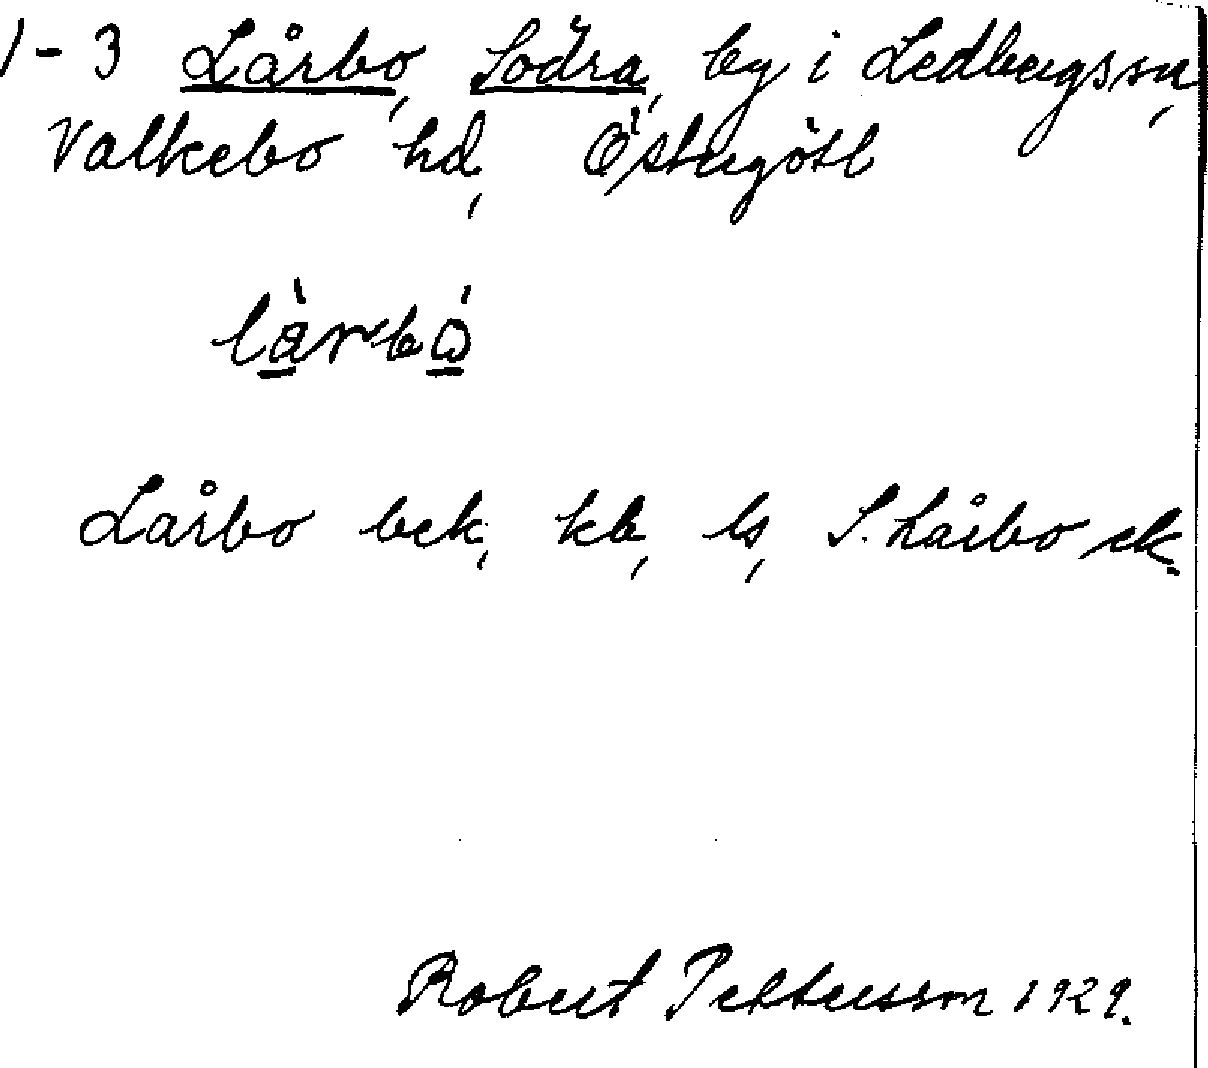 1-3 Lårbo, Södra, by i Ledbergs sn,
Valkebo hd, Östergötl
làrbó
Lårbo bek, kb, ls, S. Lårbo ek.
Robert Pettersson 1929.